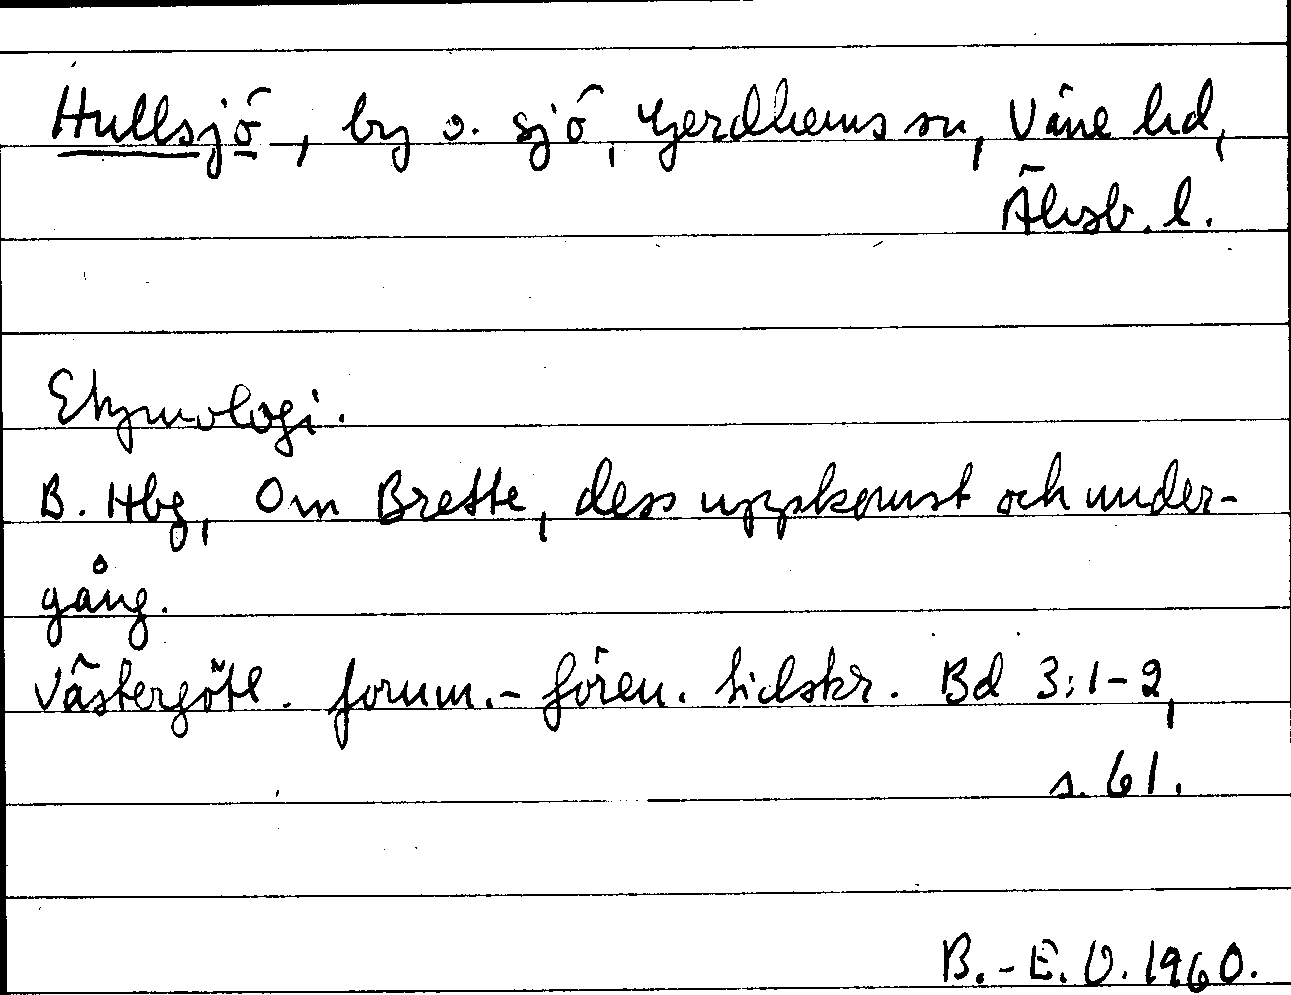 Hullsjö, by o. sjö, Gerdhems sn, Väne hd,
Älvsb. l.
Etymologi.
B. Hbg, Om Brette, dess uppkomst och under-
gång.
Västergötl. fornm.-fören. tidskr. Bd 3:1-2,
s. 61.
B.-E. O. 1960.